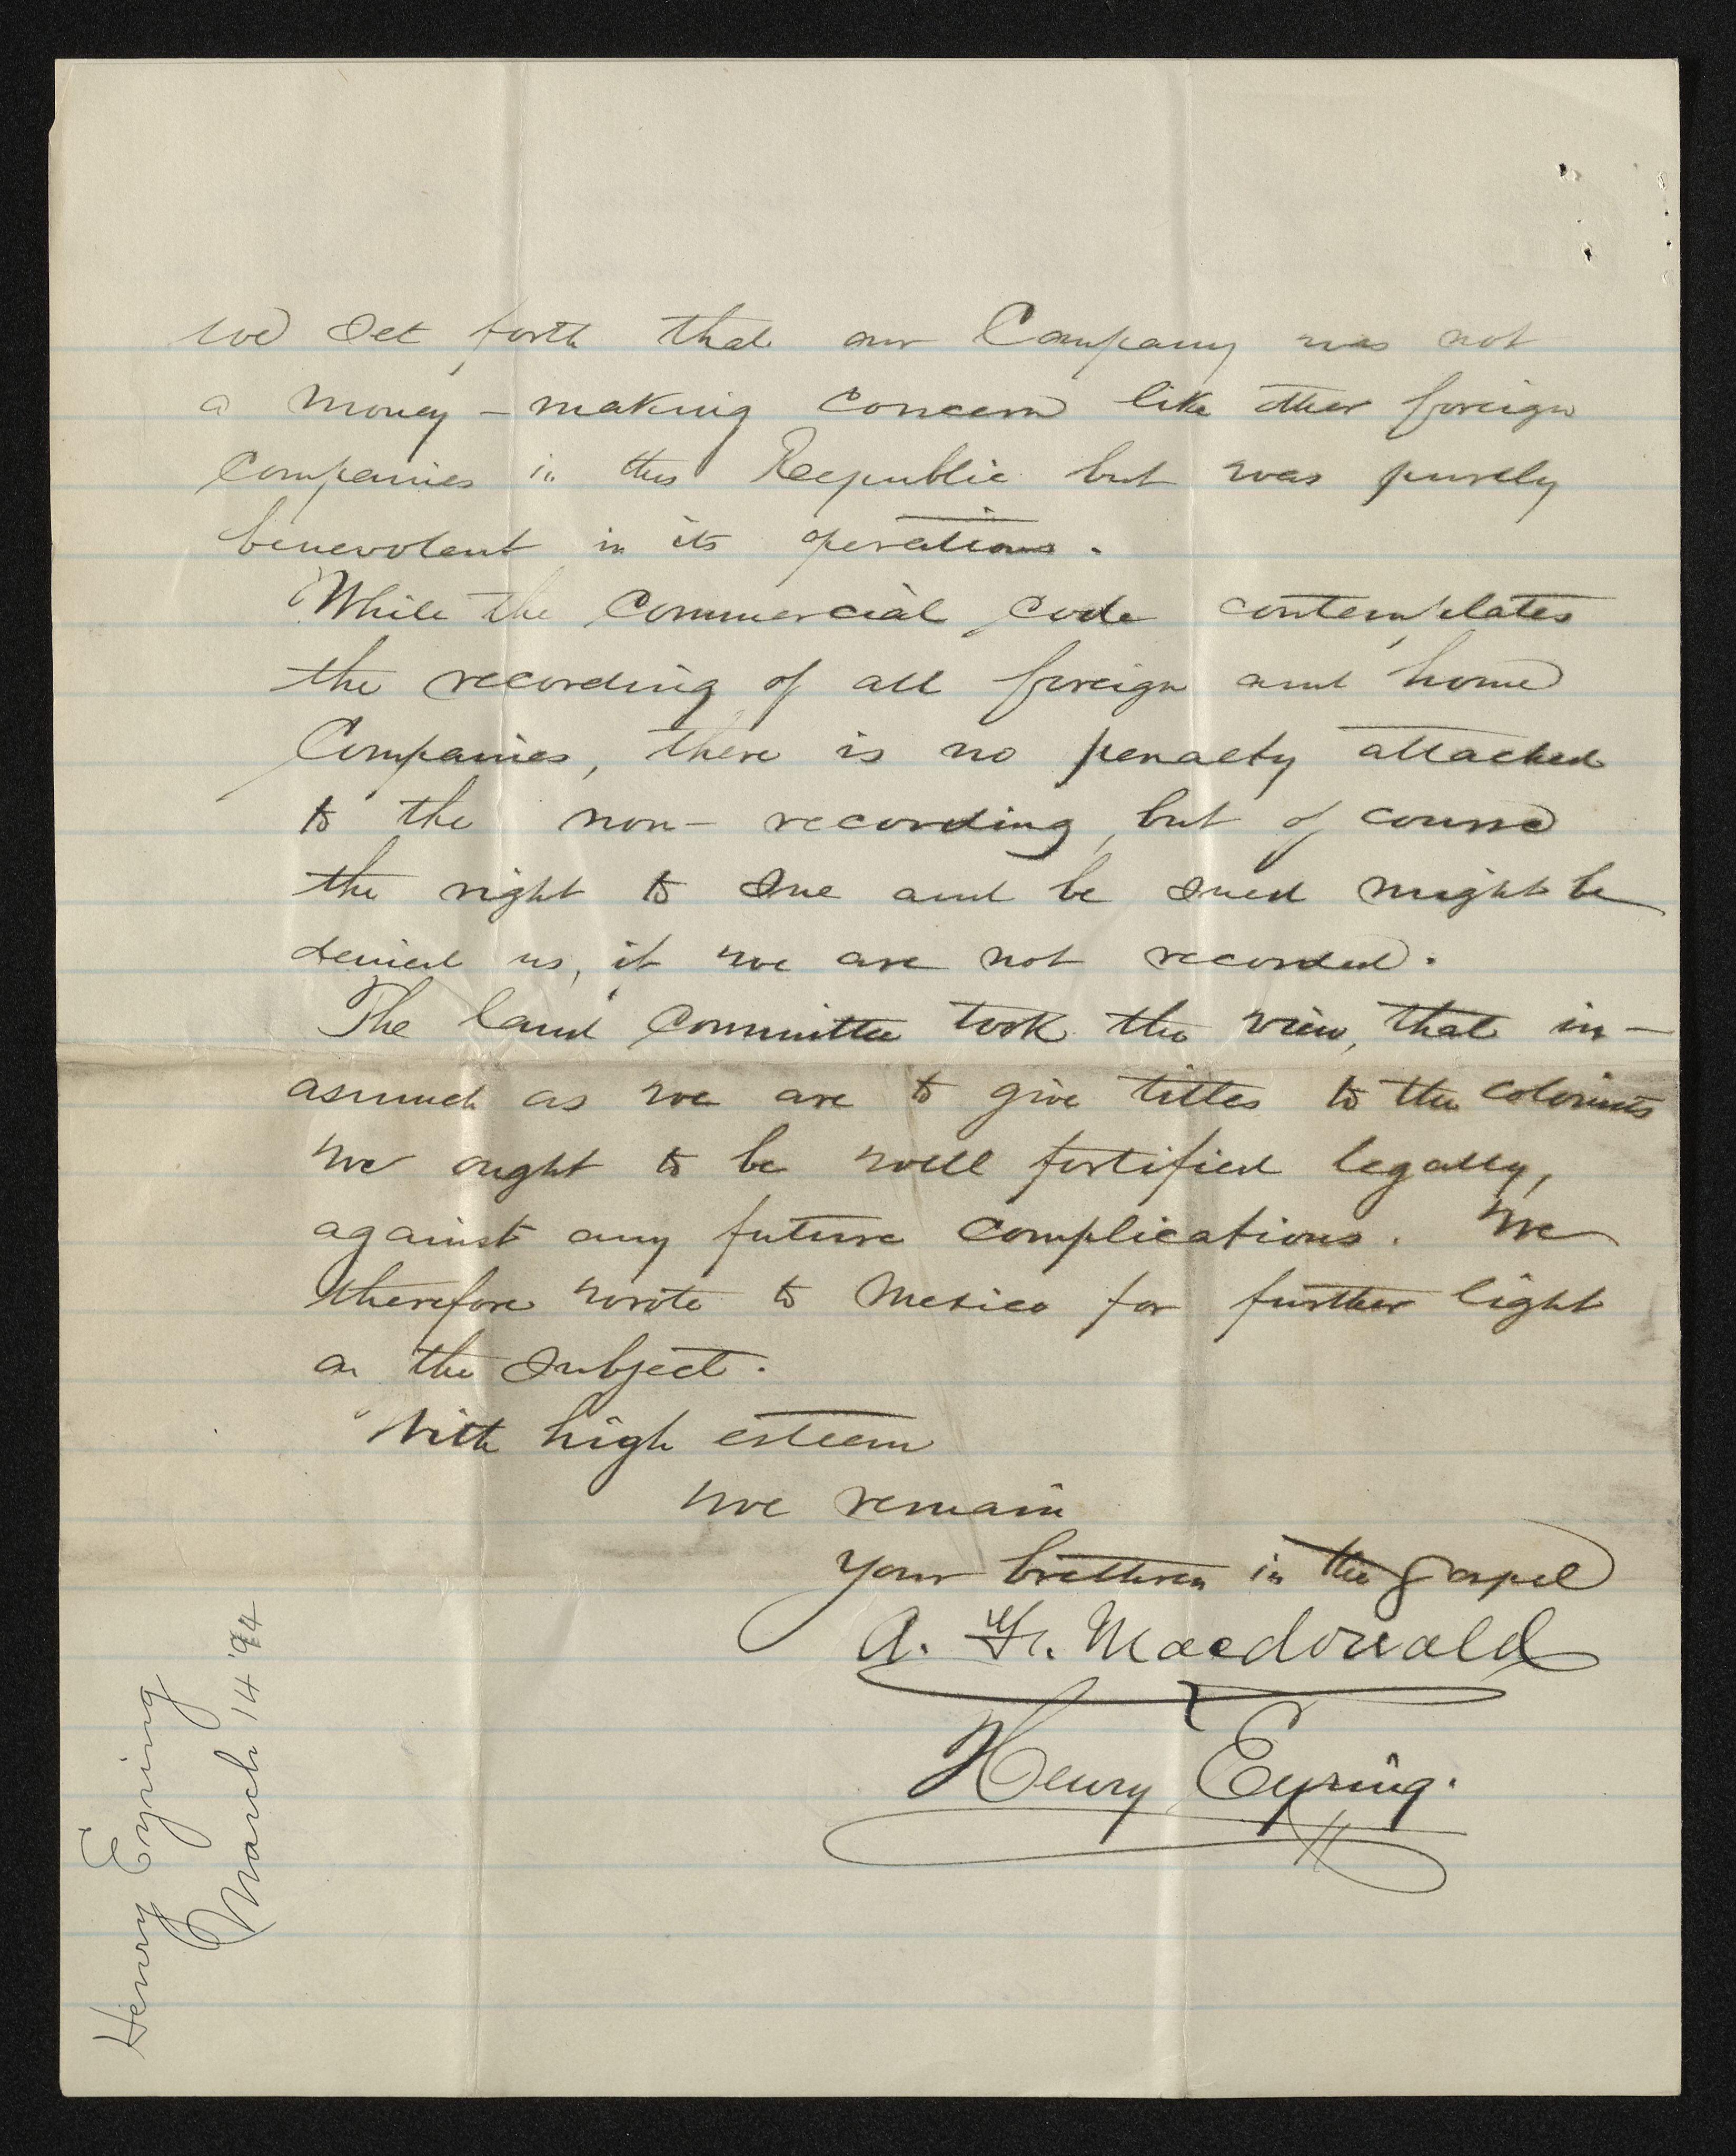 we set forth that our Company was not
a money-making concern like other foreign
Companies in this Reepublic but was purely
benevolent in its operations.
While the Commercial Code contemplates
the recording of all foreign and home
Companies, there is no penalty attached
to the non-recording, but of course
the right to sue and be sued might be
denied us, if we are not recorded.
The land Committee took the view, that in-
asmuch as we are to give titles to the colonists
we ought to be well fortified legally,
against any future complications. We
therefore wrote to Mexico for further light
on the subject.
With high esteem
we remain
your brethren in the gospel
A. F. Macdonald
Henry Eyring.
Henry Eyring
March 14 '94